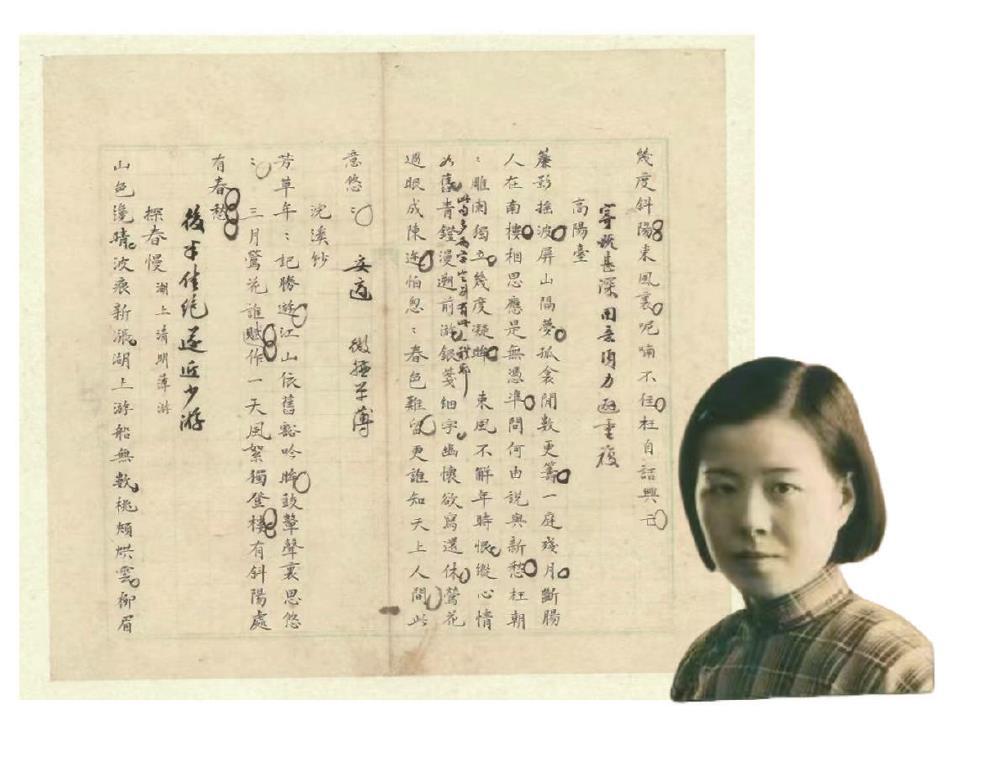 幾度斜陽東風裏呢喃不住枉自語興亡
寄託甚深用意力避重複
高陽臺
簾影搖波屏山隔夢孤衾閒數更籌一庭殘月斷腸
人在南樓相思應是無憑準問何由說與新愁枉朝
：雕闌獨立幾度凝眸 東風不解年時恨縱心情
此句多兩字
如舊青鐙漫遡前游銀箋細字幽懷欲寫還休鶯花
過眼成陳迹怕怱：春色難留更誰知天上人間此
意悠： 妥適 微嫌平薄
浣溪紗
芳草年：記勝遊江山依舊豁吟眸鼓鼙聲裏思悠
： 三月鶯花誰賦作一天風絮獨登樓有斜陽處
有春愁
後半佳絕遂近少游
探春慢 湖上清明薄游
山色邀晴波痕新漲湖上游船無數桃頰烘雲柳眉